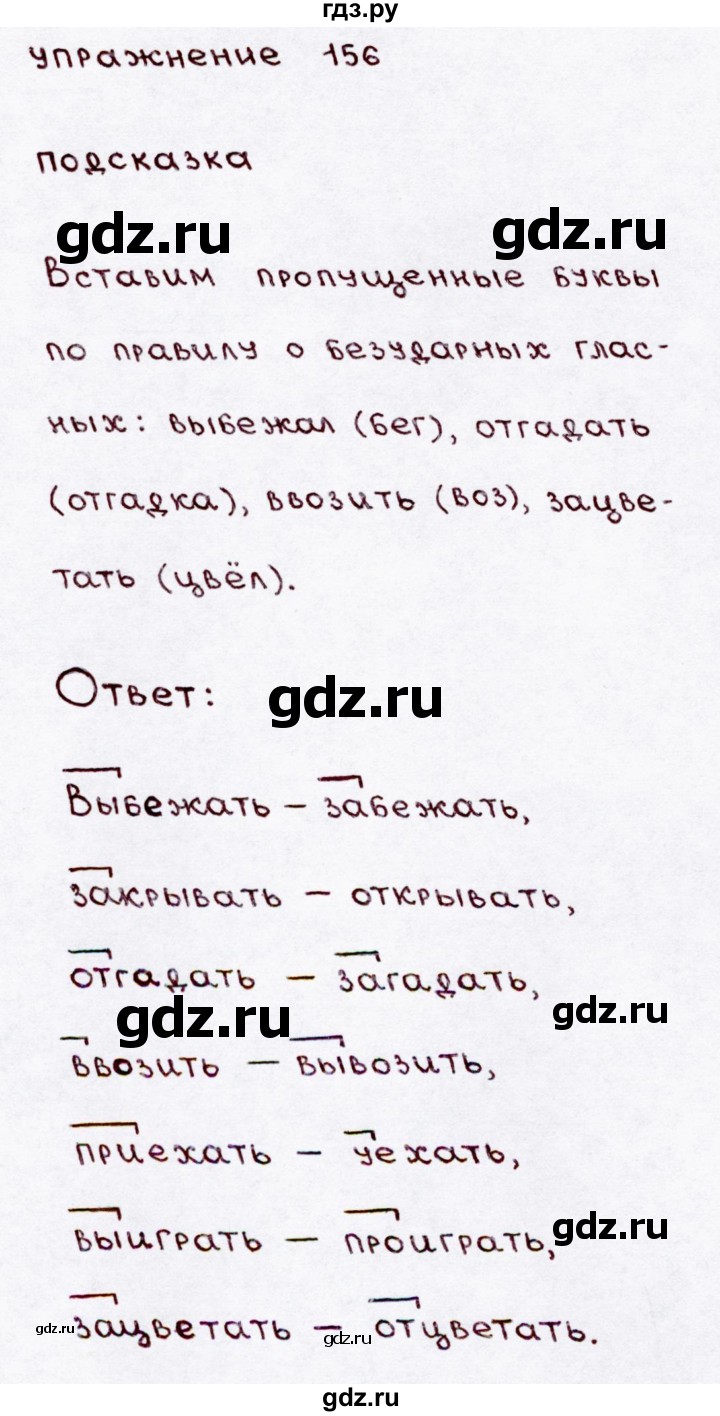 гдз.ру
упражнение 156
подсказка
gdz.ru gdz.ru
Вставим пропущенные буквы
по правилу о безударных глас-
ных: выбежал (бег), отгадать
(отгадка), ввозить (воз), зацве-
тать (цвёл).
Ответ: gdz.ru
Выбежать – забежать,
закрывать – открывать,
отгадать – загадать,
gdz.ru gdz.ru
ввозить – вывозить,
приехать – уехать,
выиграть – проиграть,
gdz.ru
зацветать – отцветать.
gdz.ru gdz.ru
gdz.ru